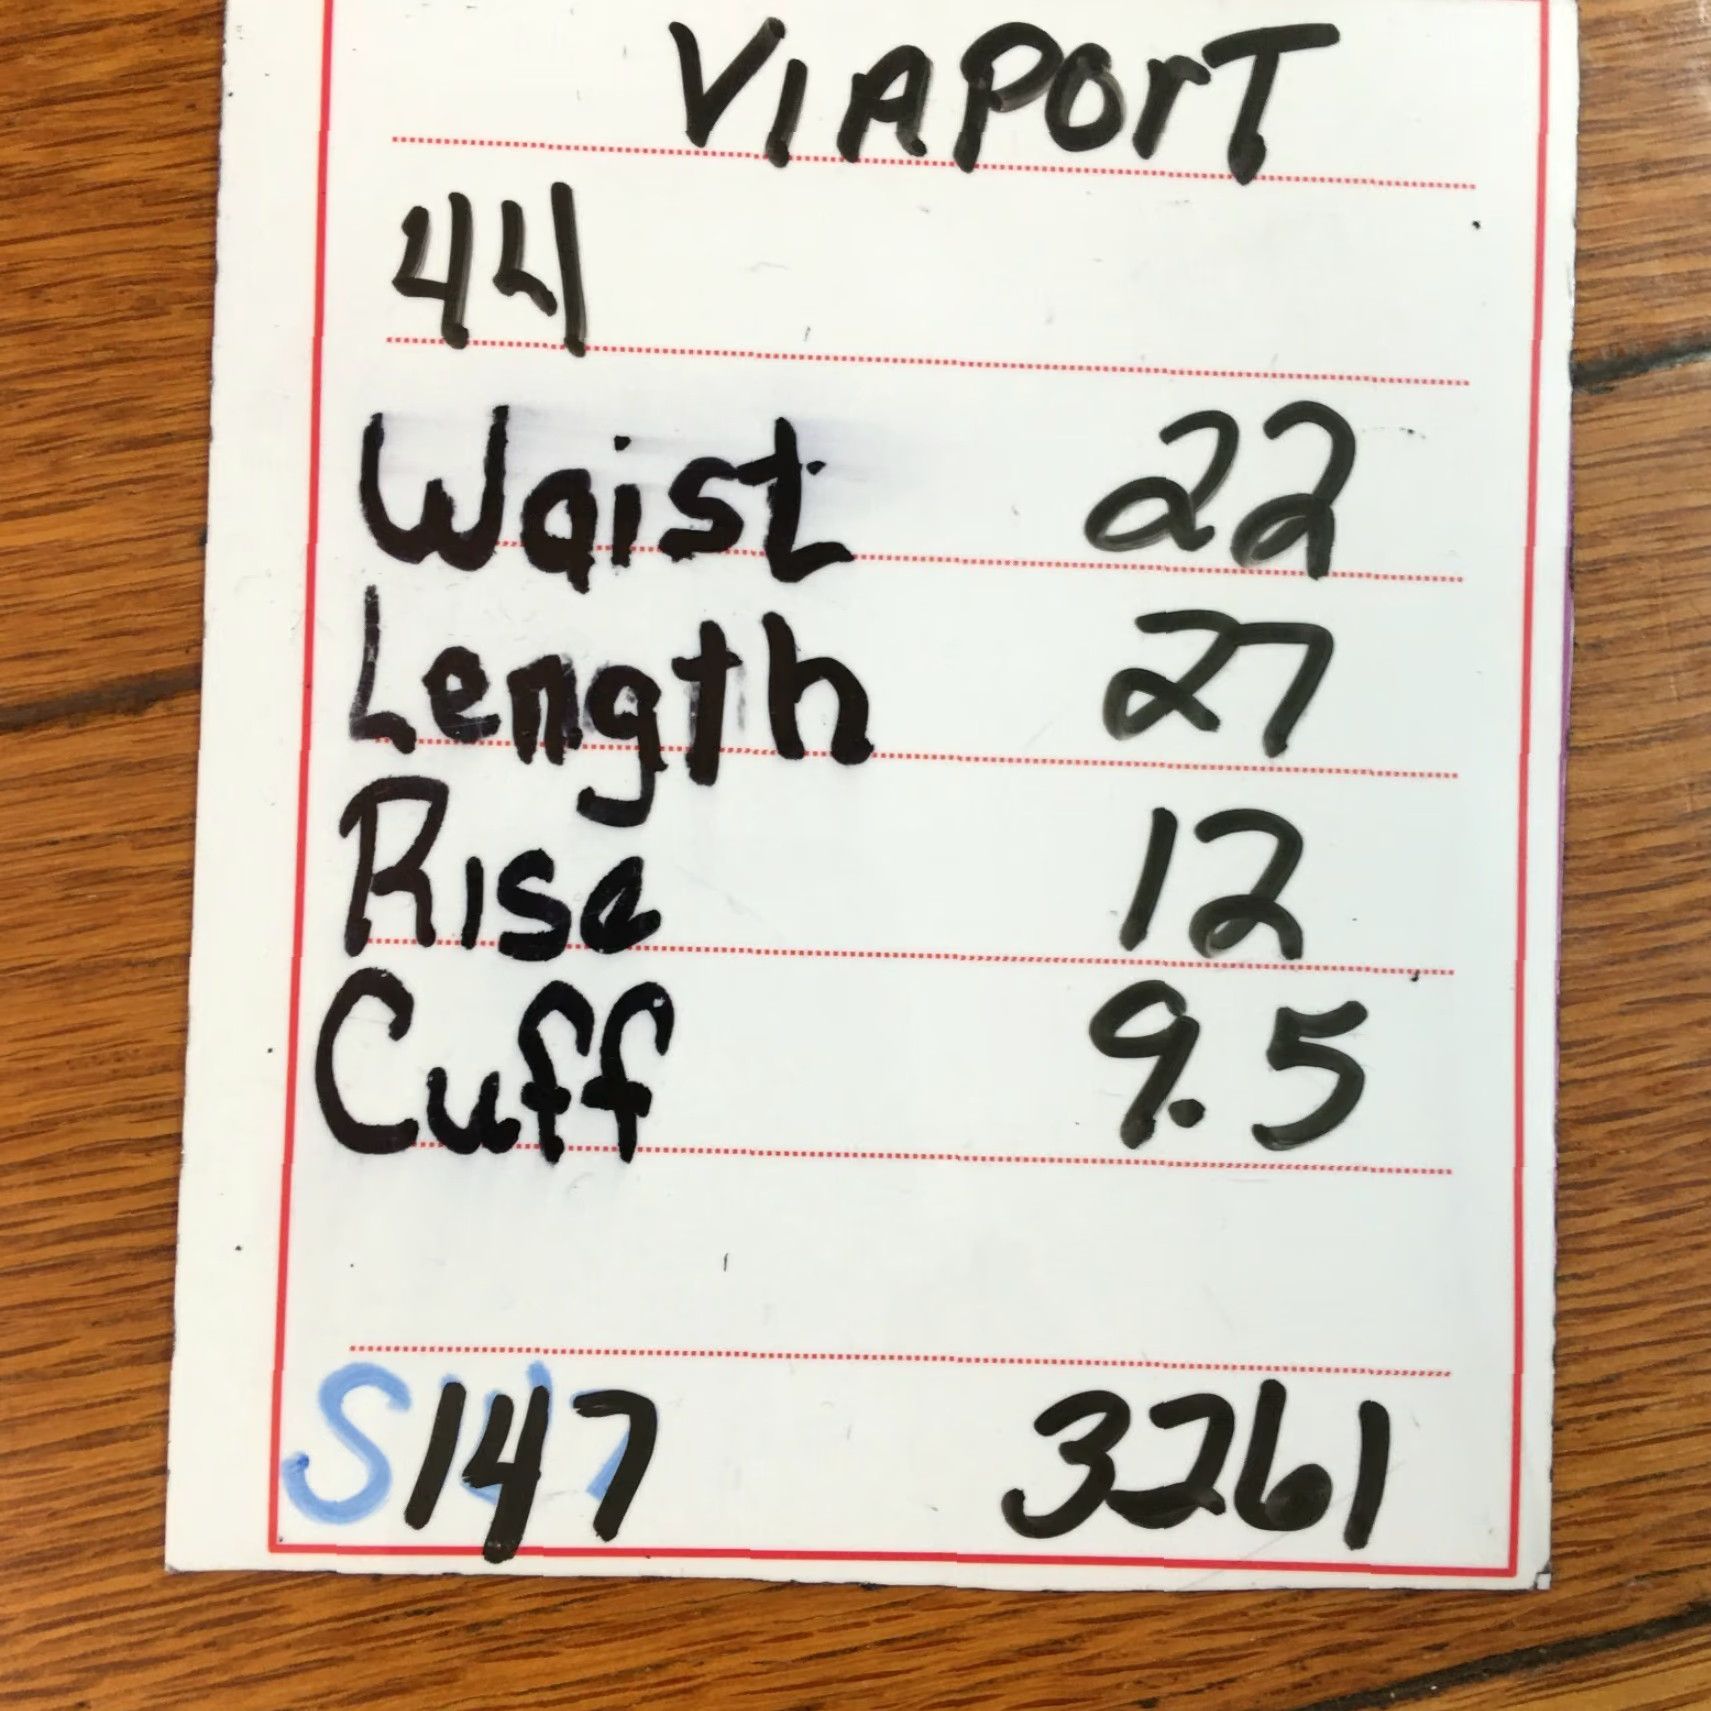 VIAPOrT
44
Waist 22
Length 27
Rise 12
Cuff 9.5
S147 3261